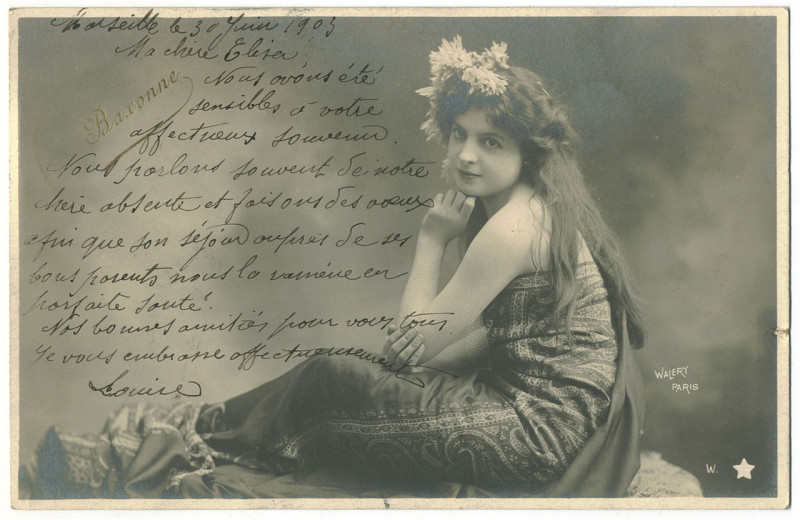 Marseille le 30 Juin 1903
Ma chère Elisa
Nous avons été
sensibles à votre
affectueux souvenir.
Nous parlons souvent de notre
chère absente et faisons des vœux
afin que son séjour auprès de ses
bons parents nous la ramène en
parfaite santé.
Nos bonnes amitiés pour vous tous
Je vous embrasse affectueusement
Louise
Baronne
WALERY
PARIS
W.